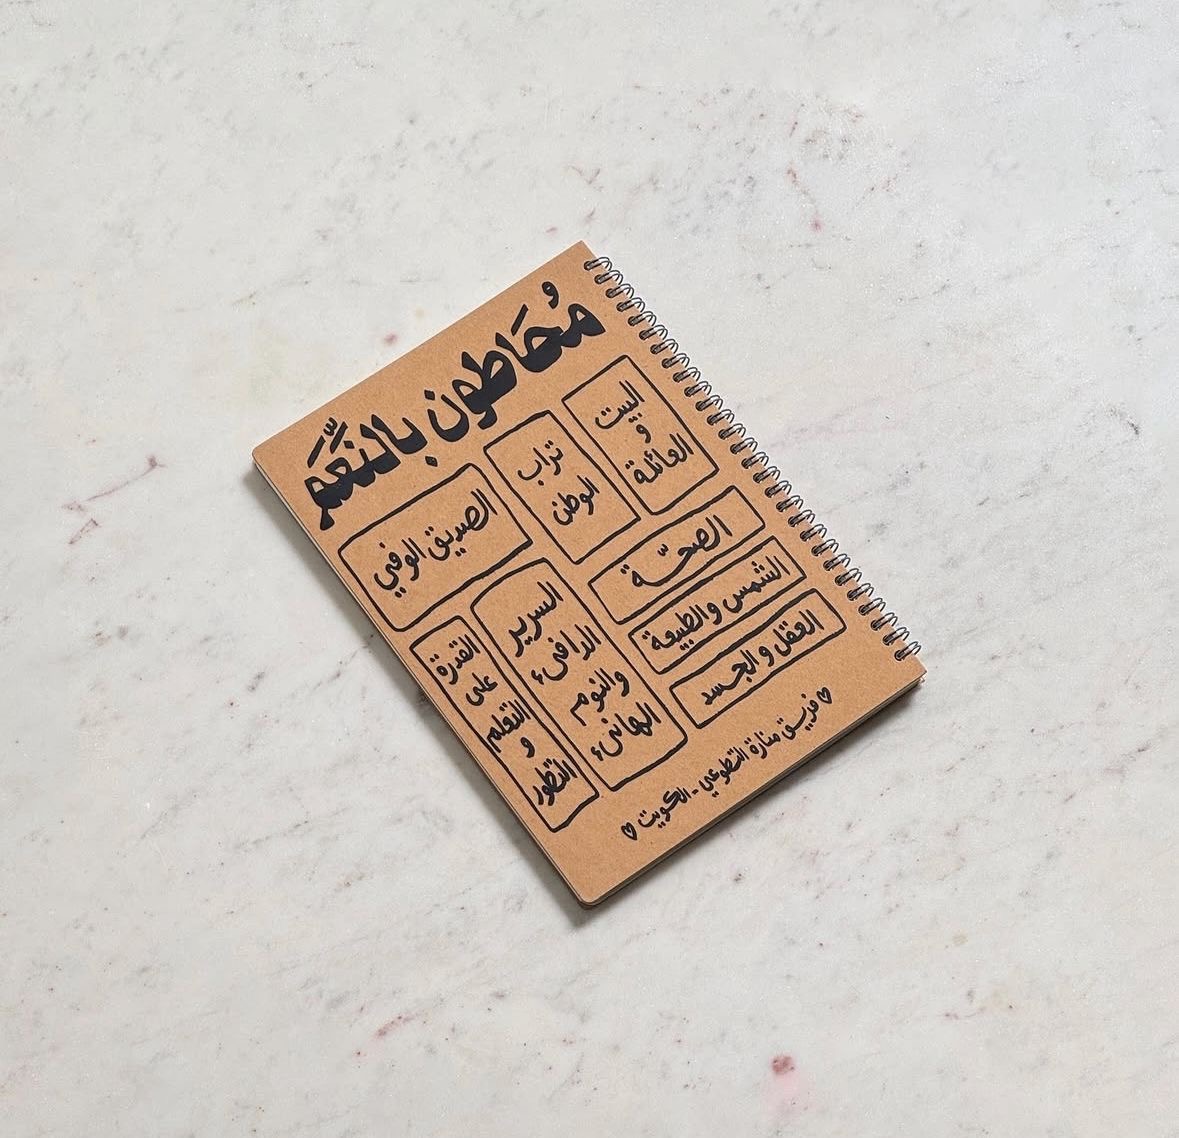 مُحَاطون بالنِّعَم
البيت
و
العائلة
تراب
الوطن
الصديق الوفي
الصحّة
الشمس و الطبيعة
العقل و الجسد
السرير
الدافئ
والنوم
الهانئ
القدرة
على
التعلم
و
التطور
♡ فريق منارة التطوعي - الكويت ♡